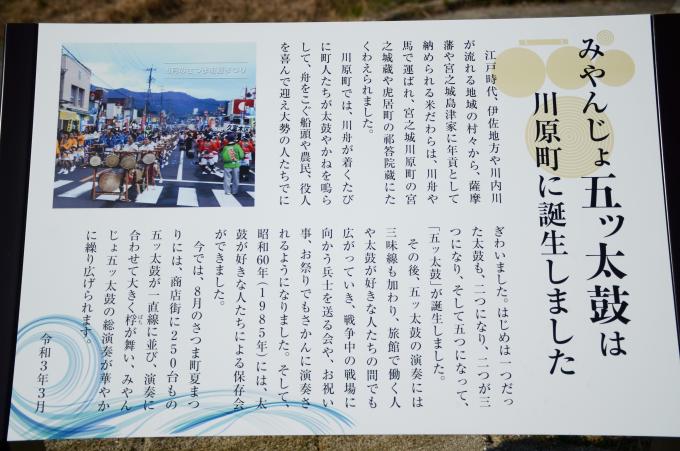 みやんじょ五ッ太鼓は
川原町に誕生しました
8月のさつま町夏まつり
江戸時代、伊佐地方や川内川
が流れる地域の村々から、薩摩
藩や宮之城島津家に年貢として
納められる米だわらは、川舟や
馬で運ばれ、宮之城川原町の宮
之城蔵や虎居町の祁答院蔵にた
くわえられました。
川原町では、川舟が着くたび
に町人たちが太鼓やかねを鳴ら
して、舟をこぐ船頭や農民、役人
を喜んで迎え大勢の人たちでに
ぎわいました。はじめは一つだっ
た太鼓も、二つになり、二つが三
つになり、そして五つになって、
「五ッ太鼓」が誕生しました。
その後、五ッ太鼓の演奏には
三味線も加わり、旅館で働く人
や太鼓が好きな人たちの間でも
広がっていき、戦争中の戦場に
向かう兵士を送る会や、お祝い
事、お祭りでもさかんに演奏さ
れるようになりました。そして、
昭和60年（1985年）には、太
鼓が好きな人たちによる保存会
ができました。
今では、8月のさつま町夏まつ
りには、商店街に250台もの
五ッ太鼓が一直線に並び、演奏に
合わせて大きく桴（ばち）が舞い、みやん
じょ五ッ太鼓の総演奏が華やか
に繰り広げられます。
令和3年3月